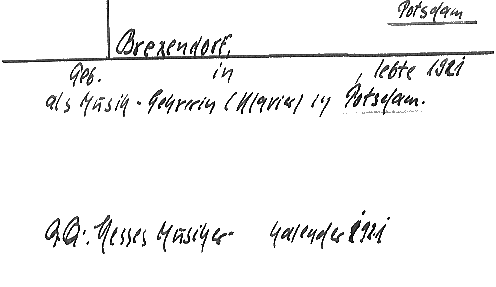 Potsdam
Brexendorf,
Geb. in , lebte 1921
als Musik-Lehrerin (Klavier) in Potsdam.
Hesses Musiker-Kalender 1921